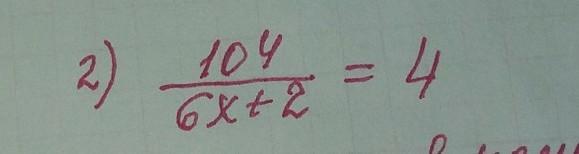 2) 104/(6x+2) = 4